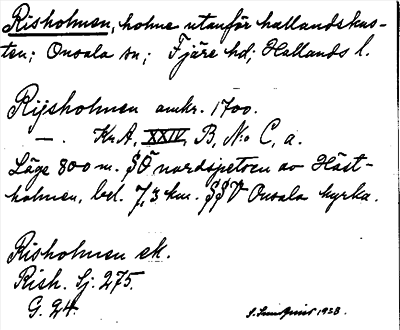 Risholmen, holme utanför hallandskus-
ten; Onsala sn; Fjäre hd; Hallands l.
Rijsholmen omkr. 1700.
—. Kr.A, XXIV, B, No C, a.
Läge 800 m. SÖ nordspetsen av Häst-
holmen, bel. 7,3 km. SSV Onsala kyrka.
Risholmen ek.
Rish. Sj. 275.
G. 24.
1928.